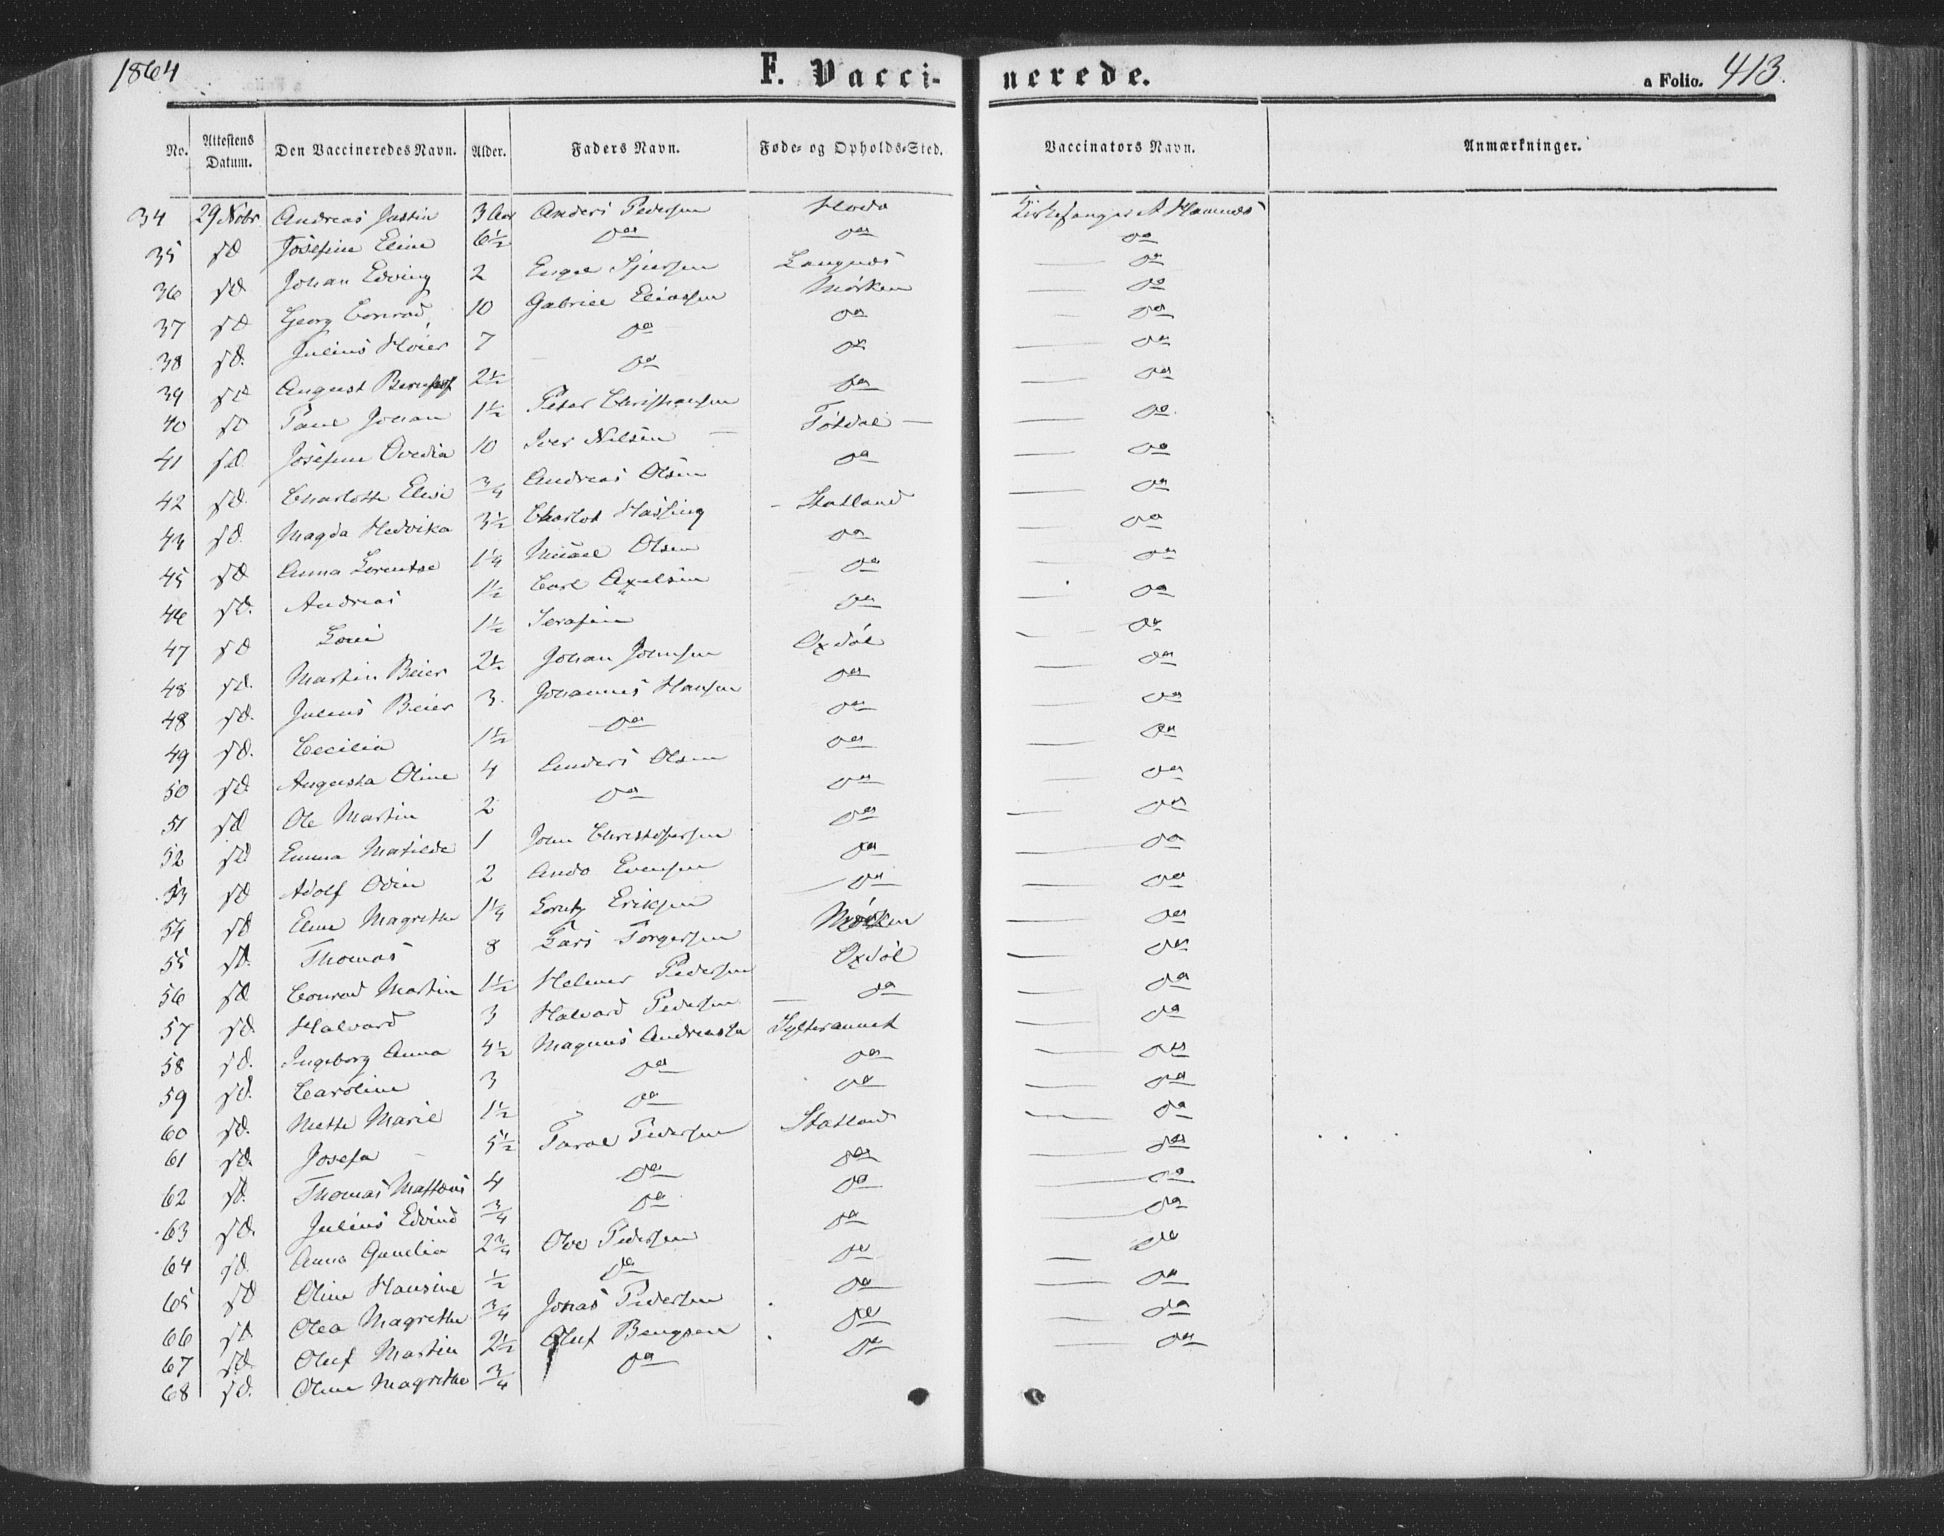 1864 F. Vaccinerede. a Folio. 413.
No. Attestens Datum. Den Vaccineredes Navn. Alder. Faders Navn. Føde- og Opholds-Sted. Vaccinators Navn. Anmærkninger.
34 29 Nobr Andreas Justin 3 Aar Anders Pedersen Hoda Kirkesanger A Hamnes
35 sd Josefine Eline 6½ do do do
36 sd Johan Edving 2 Langnes — do
37 sd Georg Conrad 10 Gabriel Eliassen Mørken — do
38 sd. Julius Høier 7 do do — do
39 sd August 2½ do do — do
40 sd Paul Johan 1½ Peter Christiansen do — do
41 sd. Josefine Ovedia 10 Iver Nilsen — Føtdal — — do
42 sd. Charlotte Elise ¾ Andreas Olsen do — do
43 sd. Magda Hedvika 3½ Charlot Hassing - Statland — do
45 sd Anna Lorentse 1¼ Mikael Olsen do — do
46 sd. Andreas 1½ Carl Axelsen do — do
47 sd 1½ Serafin do — do
48 sd. Martin Beier 2½ Johan Johnsen Oxdøl — do
48 sd. Julius Beier 3 Johannes Hansen do — do
49 sd. Cecilia 1½ do do — do
50 sd Augusta Oline 4 Anders Olsen do — do
51 sd Ole Martin 2 do do — do
52 sd Emma Matilde 1 John Christofersen do — do
53 sd Adolf Odin 2 Ando Evensen do — do
54 sd Eline Magrethe 1¼ Lorntz Eriksen do — do
55 sd. Thomas 8 Lars Torgersen Mørken — do
56 sd Conrad Martin 1½ Helmer Pedersen Oxdøl — do
57 sd Halvard 3 Halvard Pedersen — do — do
58 sd. Ingeborg Anna 4½ Magnus — do
59 sd. Caroline 3 do do — do
60 sd. Mette Marie 1½ do do — do
61 sd. Josefa 5½ Parel Pedersen Statland — do
62 sd. Thomas 4 do do — do
63 sd. Julius Edvind ¾ do do — do
64 sd. Anna Gunelia 2¾ Ole Pedersen do do
65 sd Oline Hansine ½ do do — do
66 sd Olea Magrethe ¾ Jonas Pedersen do — do
67 sd. Oluf Martin 2½ Oluf Bengsen do — do
68 sd. Oline Magrethe ¾ do do — do